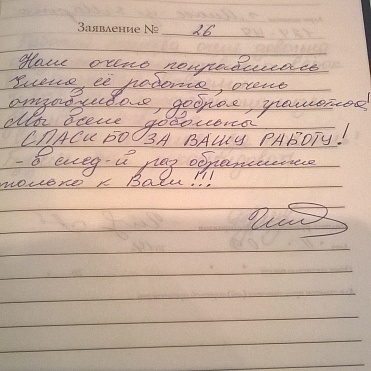 Заявление № 26
Нам очень понравилась
Члена её работа, очень
отзывчивая, добрая, грамотная!
Мы всем довольны
СПАСИБО ЗА ВАШУ РАБОТУ!
- в след-й раз обратимся
только к Вам!!!